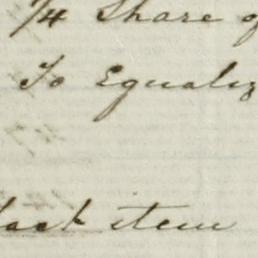 1/4 Share of
To Equaliz
last item